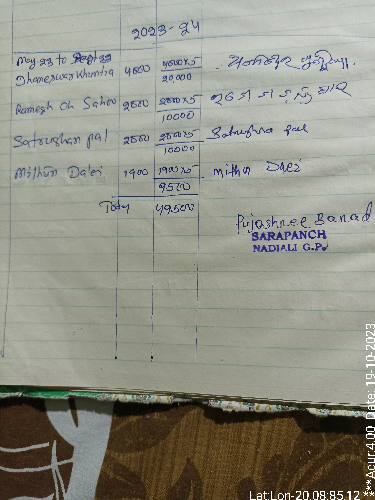 2023-24
May 23 to Sept 23
Dhaneswar Khuntia 4000 4000x5
20000
Ramesh Ch Sahoo 2000 2000x5
10000
Satrughan pal 2000 2000x5 Satrughna pal
10000
Mithun Dalei 1900 1900x5 Mithun Dalei
9500
Total 49500
Pujashree Barad
SARAPANCH
NADIALI G.P.
Lat Lon-20.08:85.12 ***Acur:4.00 Date: 19-10-2023